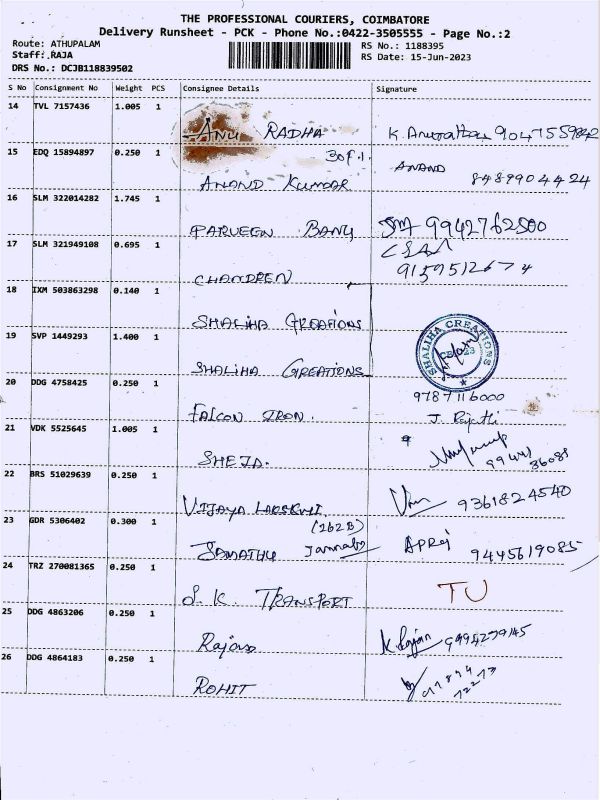 THE PROFESSIONAL COURIERS, COIMBATORE
Delivery Runsheet - PCK - Phone No.:0422-3505555 - Page No.:2
Route: ATHUPALAM RS No.: 1188395
Staff: RAJA RS Date: 15-Jun-2023
DRS No.: DCJB118839502
S No Consignment No Weight PCS Consignee Details Signature
14 TVL 7157436 1.005 1
ANU RADHA
15 EDQ 15894897 0.250 1 ANAND
ANAND KUMAR 8489904424
16 SLM 322014282 1.745 1
PARVEEN BANU 9942762500
17 SLM 321949108 0.695 1
CHANDREN 9159512674
18 IXM 503863298 0.140 1
SHALIHA CREATIONS
19 SVP 1449293 1.400 1 SHALIHA CREATIONS
SHALIHA CREATIONS
20 DDG 4758425 0.250 1 9787116000
FALCON IRON. J. Rajathi
21 VDK 5525645 1.005 1
SHEJA. 36089
22 BRS 51029639 0.250 1
VIJAYA LAKSHMI 9361824540
23 GDR 5306402 0.300 1 (262B)
JAMATHU 9445619085
24 TRZ 270081365 0.250 1
S. K. TRANSPORT TU
25 DDG 4863206 0.250 1
K. Rajan
26 DDG 4864183 0.250 1
ROHIT 72273